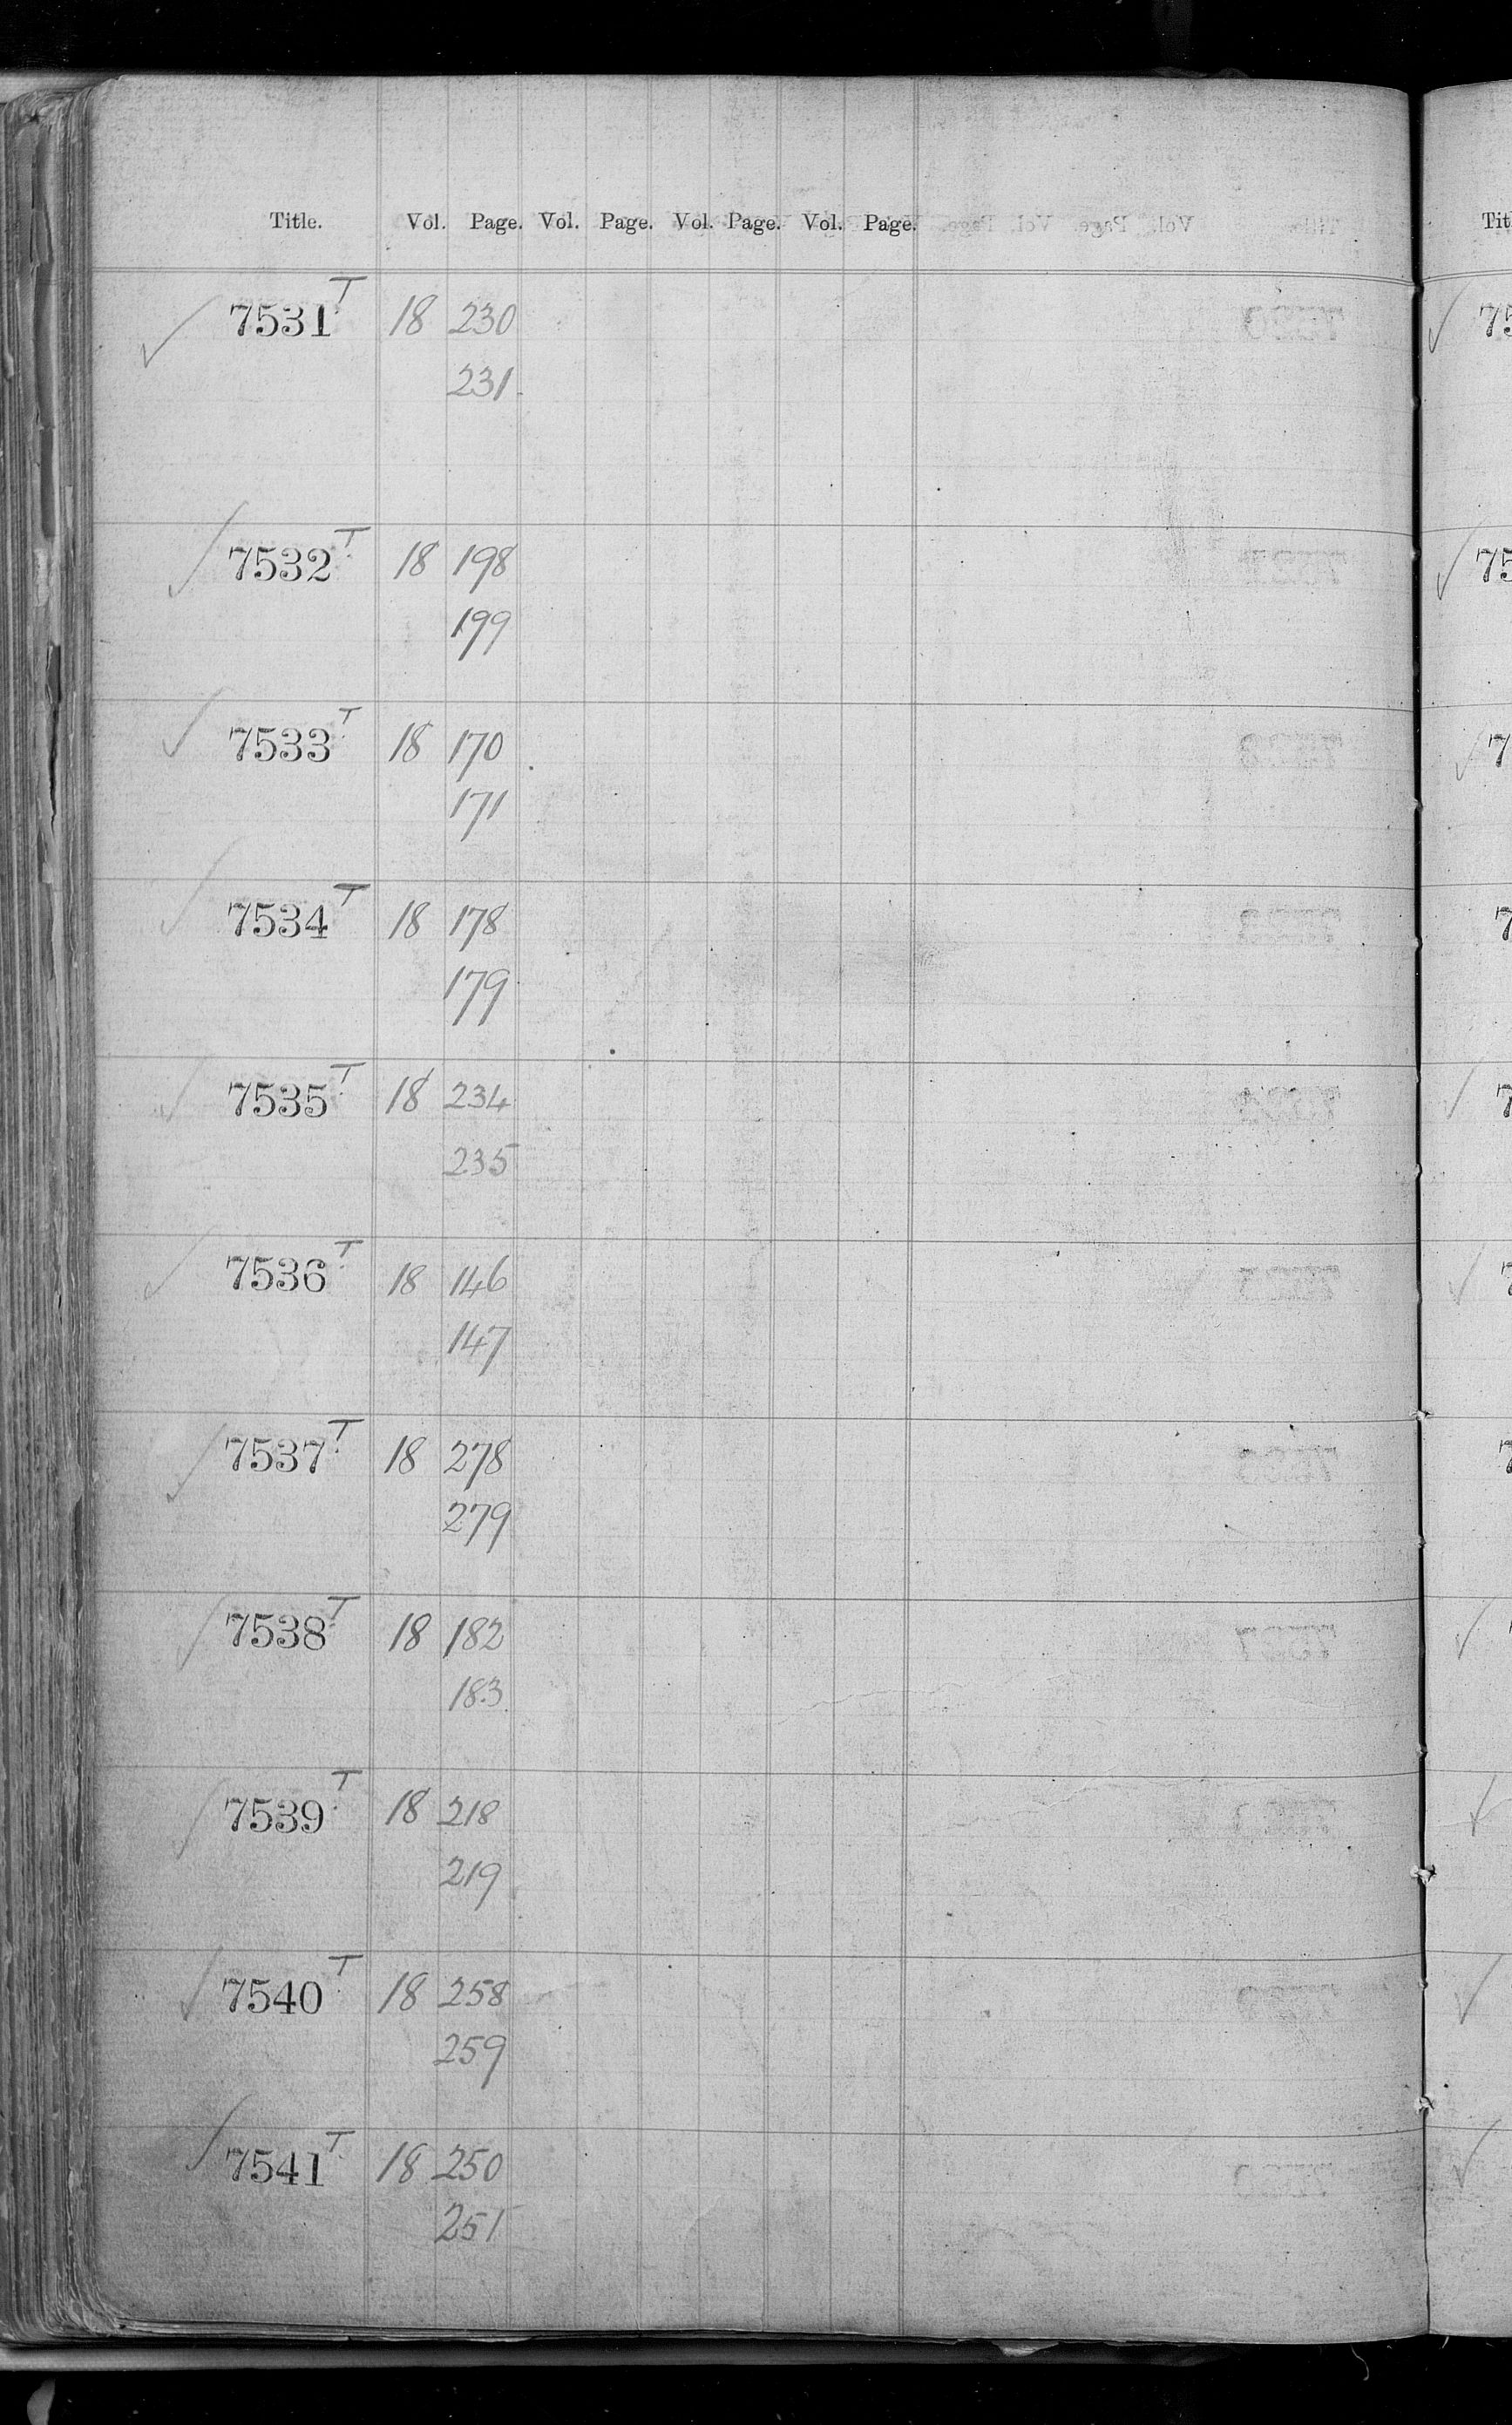 Title. Vol. Page. Vol. Page. Vol. Page. Vol. Page. Tit
✓ 7531 T 18 230
231
✓ 7532 T 18 198
199
✓ 7533 T 18 170
171
✓ 7534 T 18 178
179
✓ 7535 T 18 234
235
✓ 7536 T 18 146
147
✓ 7537 T 18 278
279
✓ 7538 T 18 182
183
✓ 7539 T 18 218
219
✓ 7540 T 18 258
259
✓ 7541 T 18 250
251